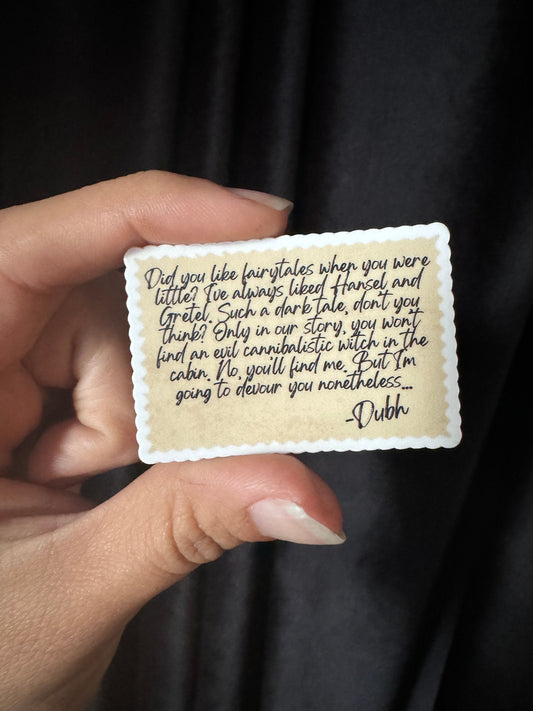 Did you like fairytales when you were
little? I've always liked Hansel and
Gretel. Such a dark tale, don't you
think? Only in our story, you won't
find an evil cannibalistic witch in the
cabin. No, you'll find me. But I'm
going to devour you nonetheless...
-Dubh